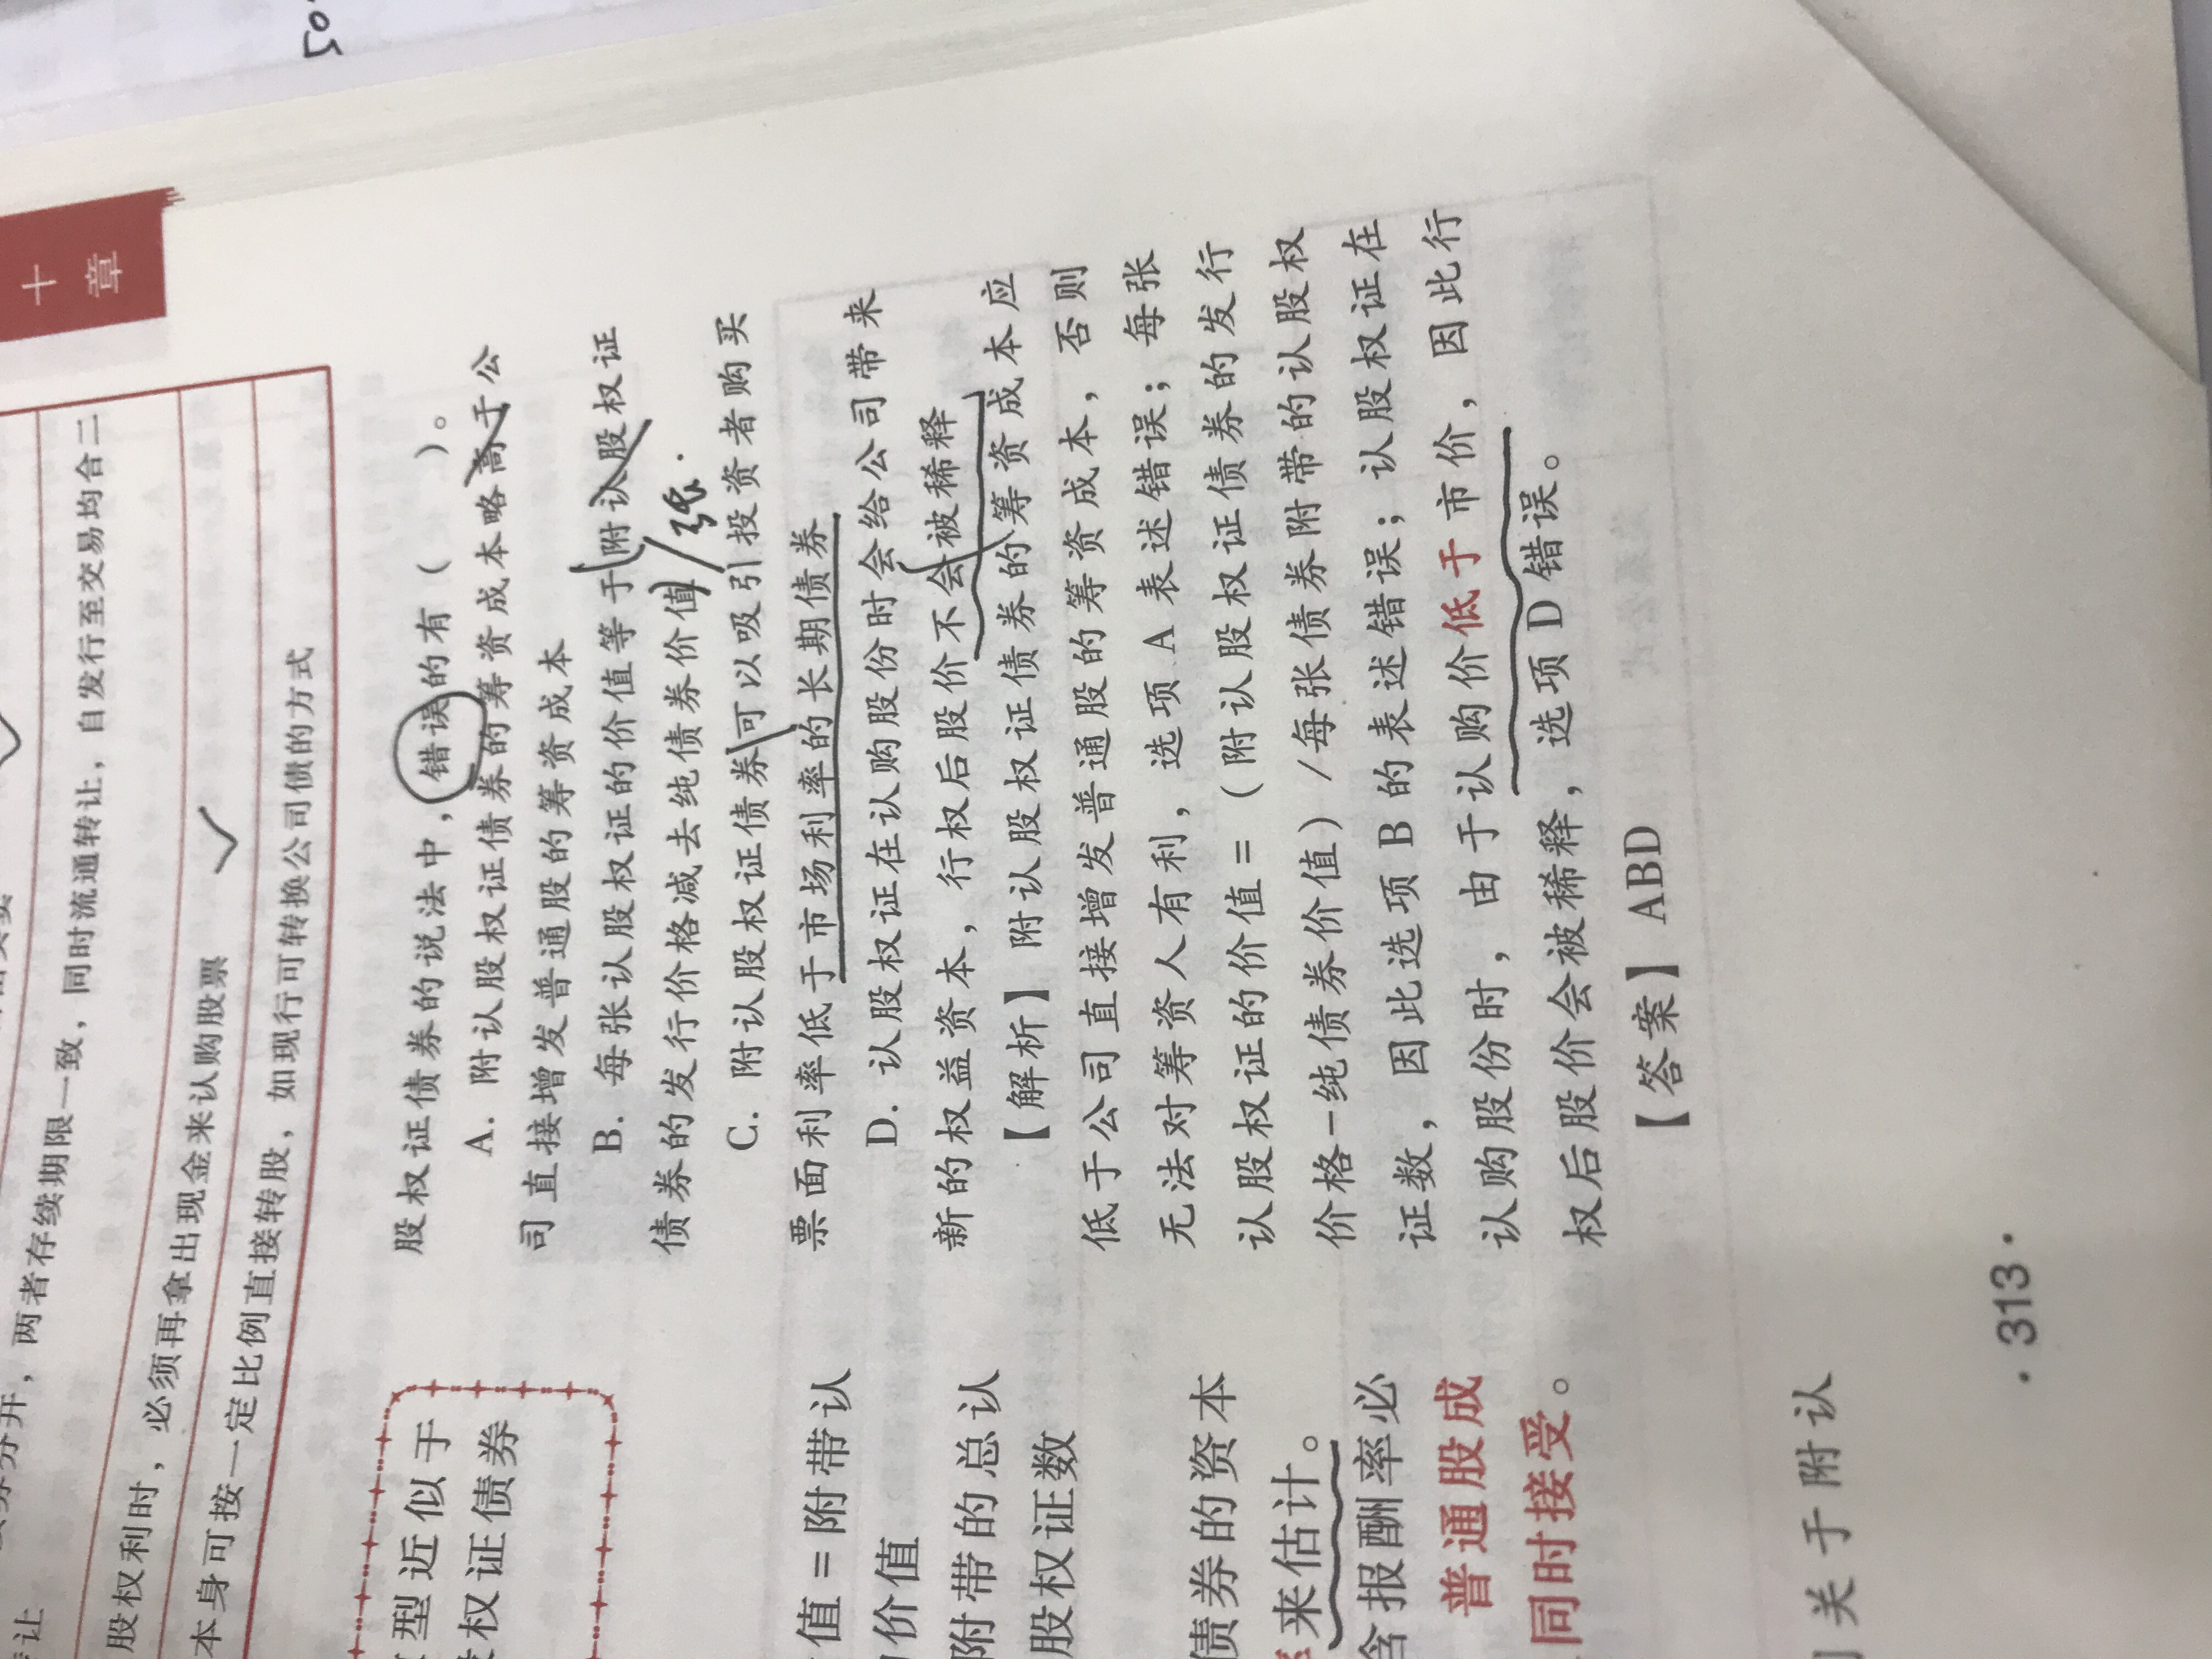 十
章
两者存续期限一致，同时流通转让，自发行至交易均合二
股权利时，必须再拿出现金来认购股票
本身可按一定比例直接转股，如现行可转换公司债的方式
型近似于
权证债券
值=附带认
价值
附带的总认
股权证数
债券的资本
来估计。
含报酬率必
普通股成
同时接受。
关于附认
股权证债券的说法中，错误的有（ ）。
A. 附认股权证债券的筹资成本略高于公
司直接增发普通股的筹资成本
B. 每张认股权证的价值等于附认股权证
债券的发行价格减去纯债券价值
/张.
C. 附认股权证债券可以吸引投资者购买
票面利率低于市场利率的长期债券
D. 认股权证在认购股份时会给公司带来
新的权益资本，行权后股价不会被稀释
【解析】附认股权证债券的筹资成本应
低于公司直接增发普通股的筹资成本，否则
无法对筹资人有利，选项 A 表述错误；每张
认股权证的价值=（附认股权证债券的发行
价格-纯债券价值）/每张债券附带的认股权
证数，因此选项 B 的表述错误；认股权证在
认购股份时，由于认购价低于市价，因此行
权后股价会被稀释，选项 D 错误。
【答案】ABD
·313·